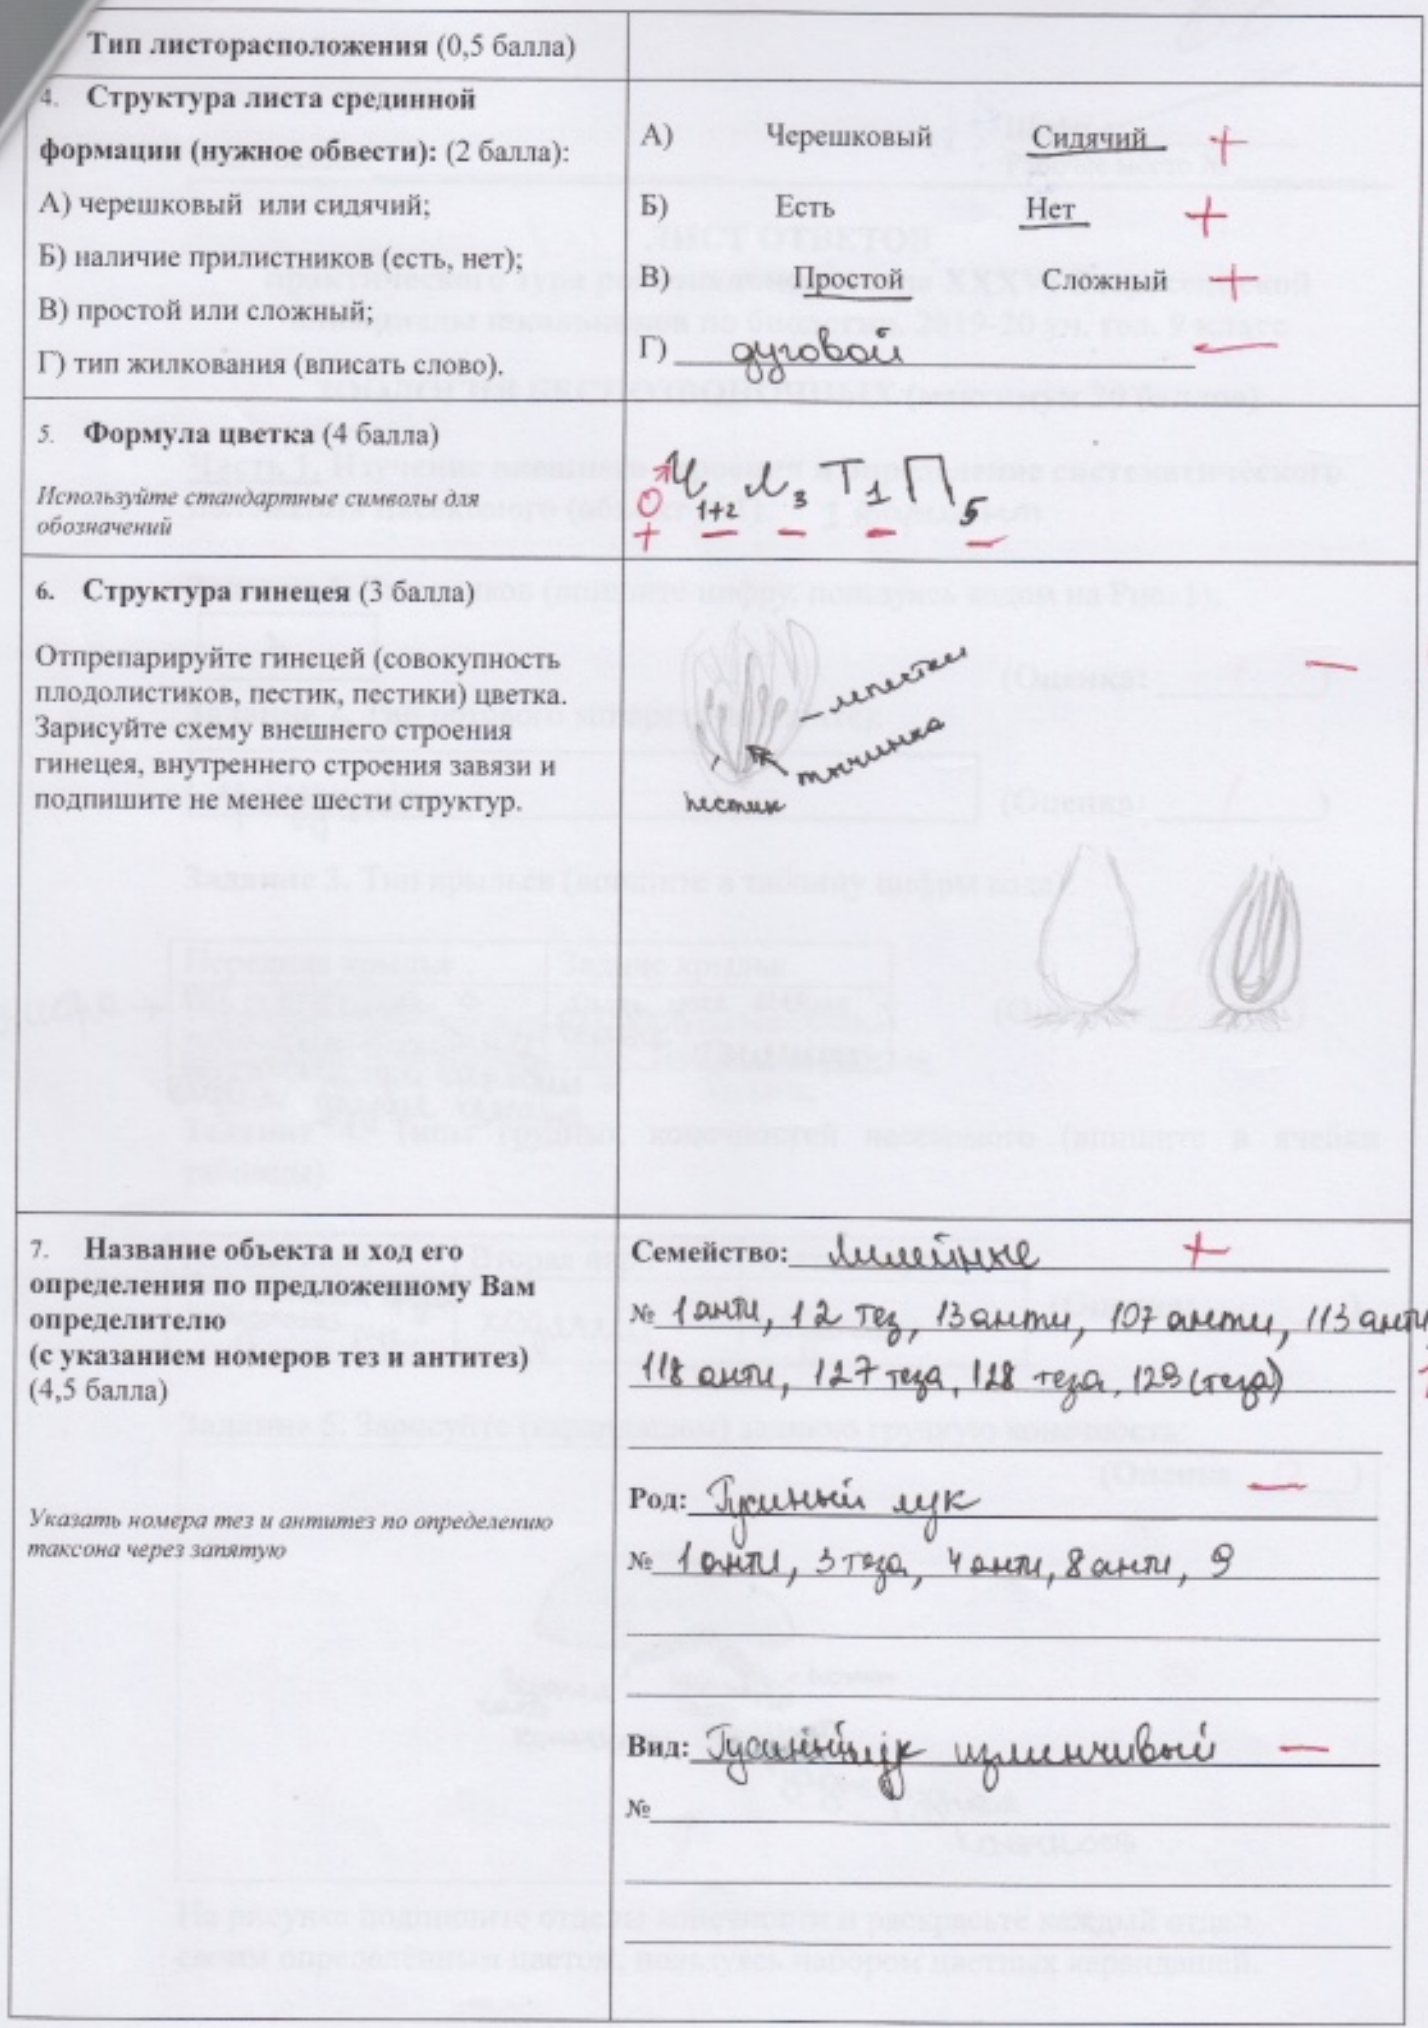 Тип листорасположения (0,5 балла)
4. Структура листа срединной
формации (нужное обвести): (2 балла):
А) черешковый или сидячий;
Б) наличие прилистников (есть, нет);
В) простой или сложный;
Г) тип жилкования (вписать слово).
А) Черешковый Сидячий +
Б) Есть Нет +
В) Простой Сложный +
Г) дуговой —
5. Формула цветка (4 балла)
Используйте стандартные символы для
обозначений
Ч 1+2 Л 3 Т 1 П 5
+ — — — —
6. Структура гинецея (3 балла)
Отпрепарируйте гинецей (совокупность
плодолистиков, пестик, пестики) цветка.
Зарисуйте схему внешнего строения
гинецея, внутреннего строения завязи и
подпишите не менее шести структур.
лепестки
тычинка
пестик
—
7. Название объекта и ход его
определения по предложенному Вам
определителю
(с указанием номеров тез и антитез)
(4,5 балла)
Указать номера тез и антитез по определению
таксона через запятую
Семейство: Лилейные +
№ 1 анти, 12 тез, 13 анти, 107 анти, 113 анти,
118 анти, 127 теза, 128 теза, 129 (теза)
Род: Гусиный лук —
№ 1 анти, 3 теза, 4 анти, 8 анти, 9
Вид: Гусиный лук изменчивый —
№